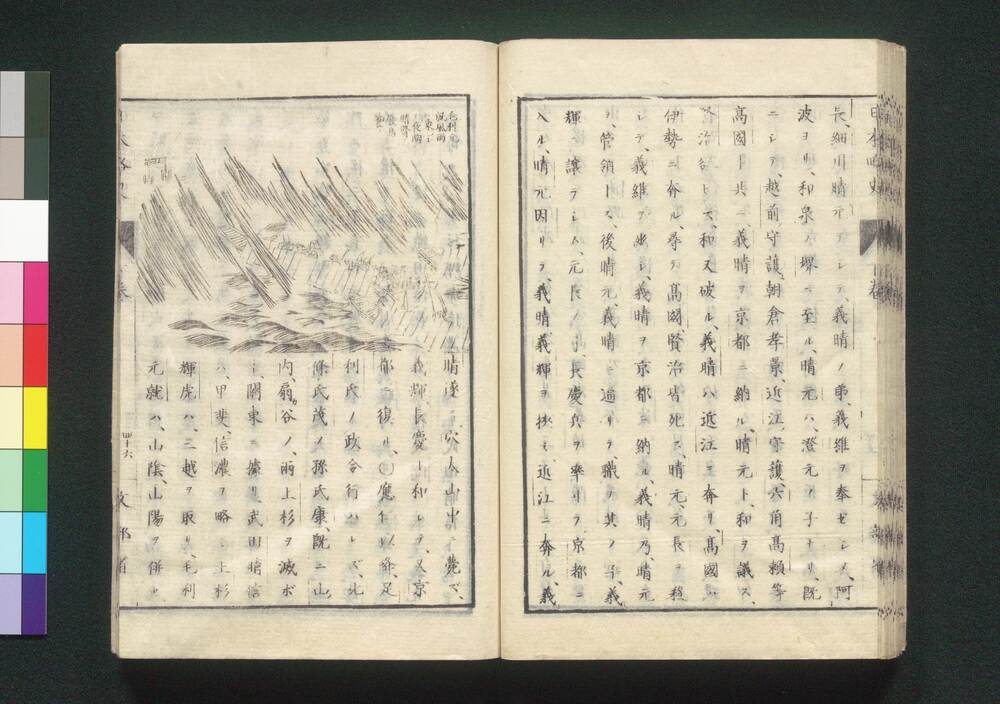 長細川晴元ヲシテ、義晴ノ弟、義維ヲ奉ゼシメ、阿
波ヨリ、和泉ノ堺ニ至ル、晴元ハ、澄元ノ子ナリ、既
ニシテ、越前守護、朝倉孝景、近江守護、六角高頼等
高國ト共ニ、義晴ヲ京都ニ納ル、晴元ト、和ヲ議ス、
治欲セズ、和又破ル、義晴ハ、近江ニ奔リ、高國ハ、
伊勢ニ奔ル、尋デ、高國、賢治皆死ス、晴元、元長ヲ
シテ、義維ヲ、義晴ヲ京都ニ納ル、義晴乃、晴元
ヲ、管領トス、後晴元、義晴ニ迫リテ、職ヲ其ノ子、義
輝ニ譲ラシム、元長ノ子、長慶兵ヲ率ヰテ、京都ニ
入ル、晴元因リテ、義晴、義輝ヲ挾ミ、近江ニ奔ル、義
毛利元
風雨
東ニ
夜
晴遂ニ、穴太山中ニ薨ズ、
義輝、長慶ト和シテ、又京
都ニ復ル、應仁以來、足
利氏ノ政令行ハレズ、北
條氏茂ノ孫氏康、既ニ山
内、扇谷ノ、兩上杉ヲ滅ボ
シ、關東ニ據リ、武田晴信
ハ、甲斐、信濃ヲ略シ、上杉
輝虎ハ、三越ヲ取リ、毛利
元就ハ、山陰、山陽ヲ併セ
四十六
文部省